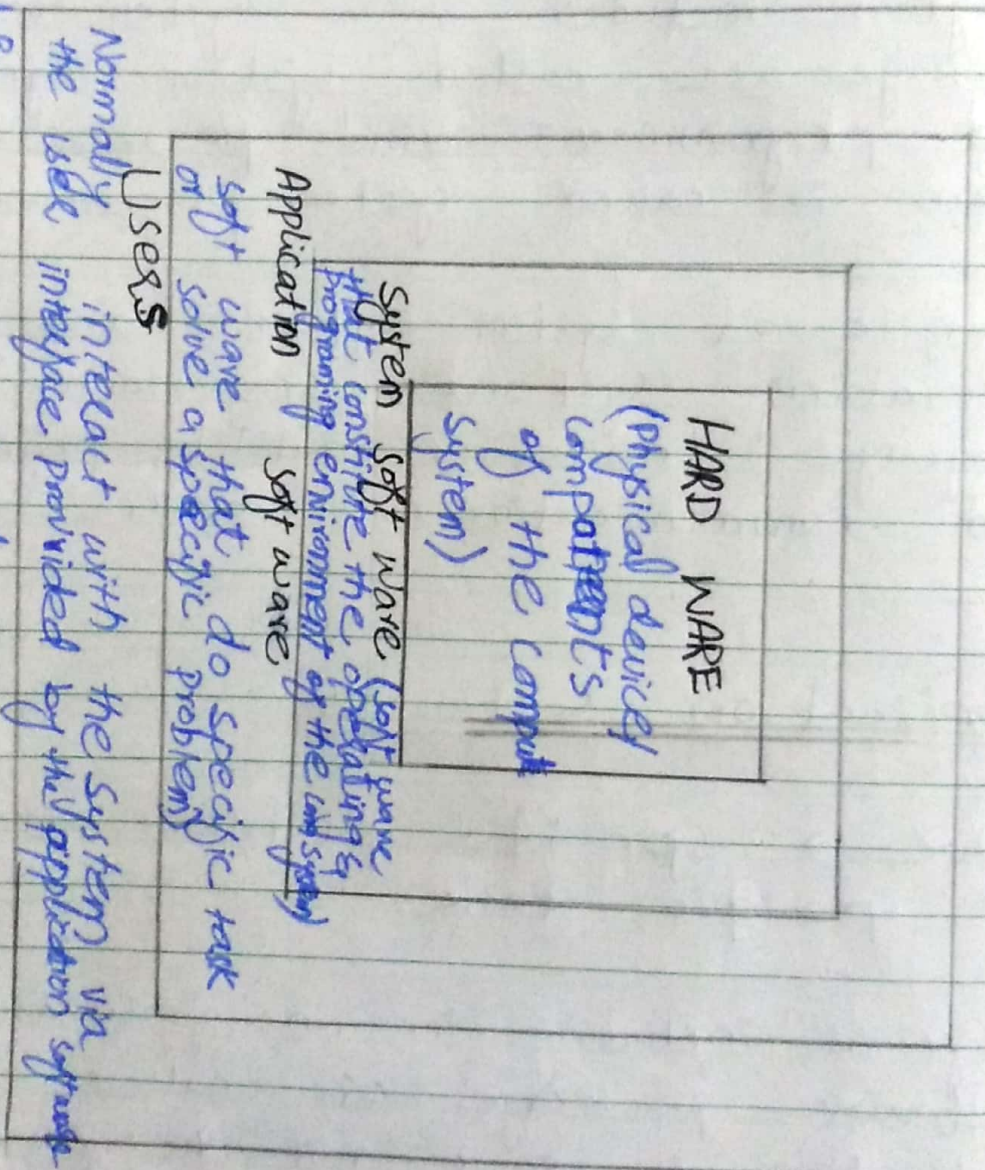 HARD WARE
(Physical devices
components
of the comput
system)
System soft ware (soft ware
that constitute the operating &
programing environment of the system)
Application soft ware
soft ware that do specific task
or solve a specific problem)
Users
Normally interact with the system via
the user interface provided by the application software